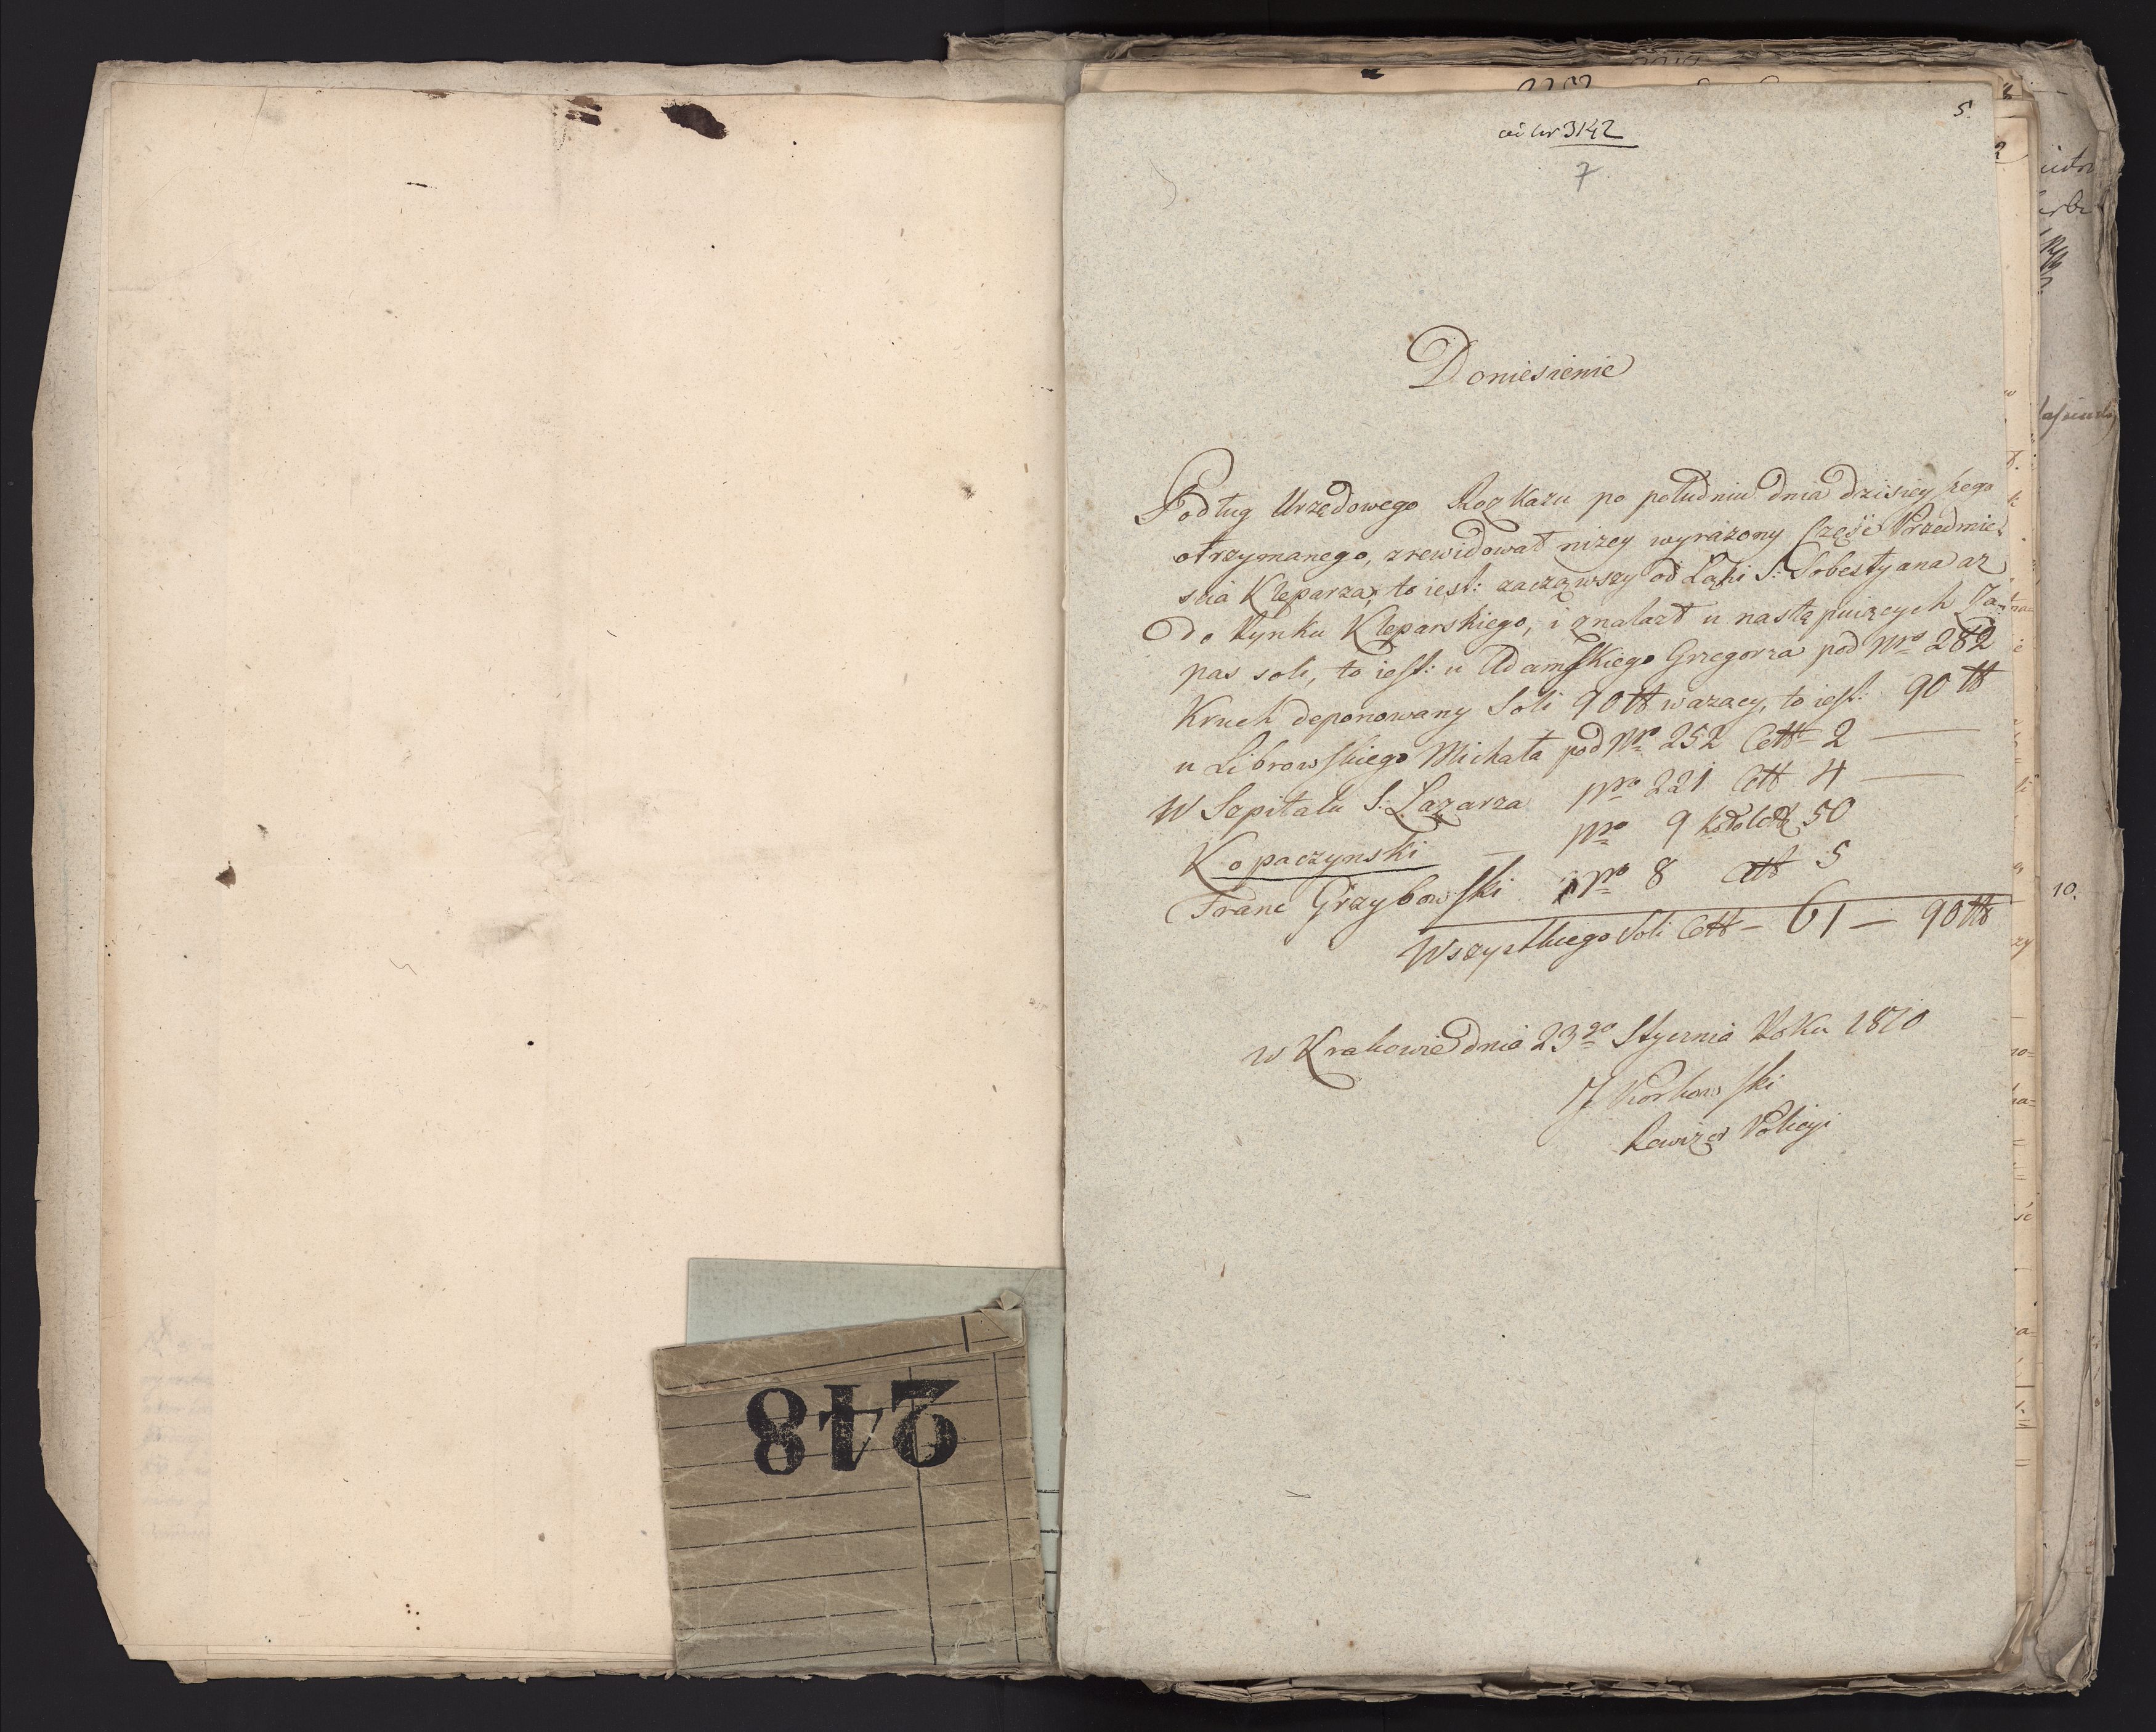 5.
ad Nr 3142
7
Doniesienie
Podług Urzędowego Rozkazu po południu dnia dzisieyszego
otrzymanego, zrewidował niżey wyrażony Część Przedmie-
scia Kleparza, to iest: zacząwszy od Łąki S: Sobestyana aż
do Rynku Kleparskiego, i znalazł u nastąpuiących Za-
pas soli, to iest: u Adamskiego Grzegorza pod Nro 282
Kruch deponowany Soli 90 ℔ wazacy, to iest: 90 ℔
u Librowskiego Michała pod Nro 252 Ctt 2 —
W Szpitalu S. Łazarza Nro 221 Ctt 4 —
Kopaczynski — Nro 9 50
Franc Grzybowski Nro 8 Ctt 5
Wszystkiego Soli Ctt — 61 — 90 ℔
w Krakowie dnia 23go Stycznia Roku 1810
Rewizor Policyi
248
10.